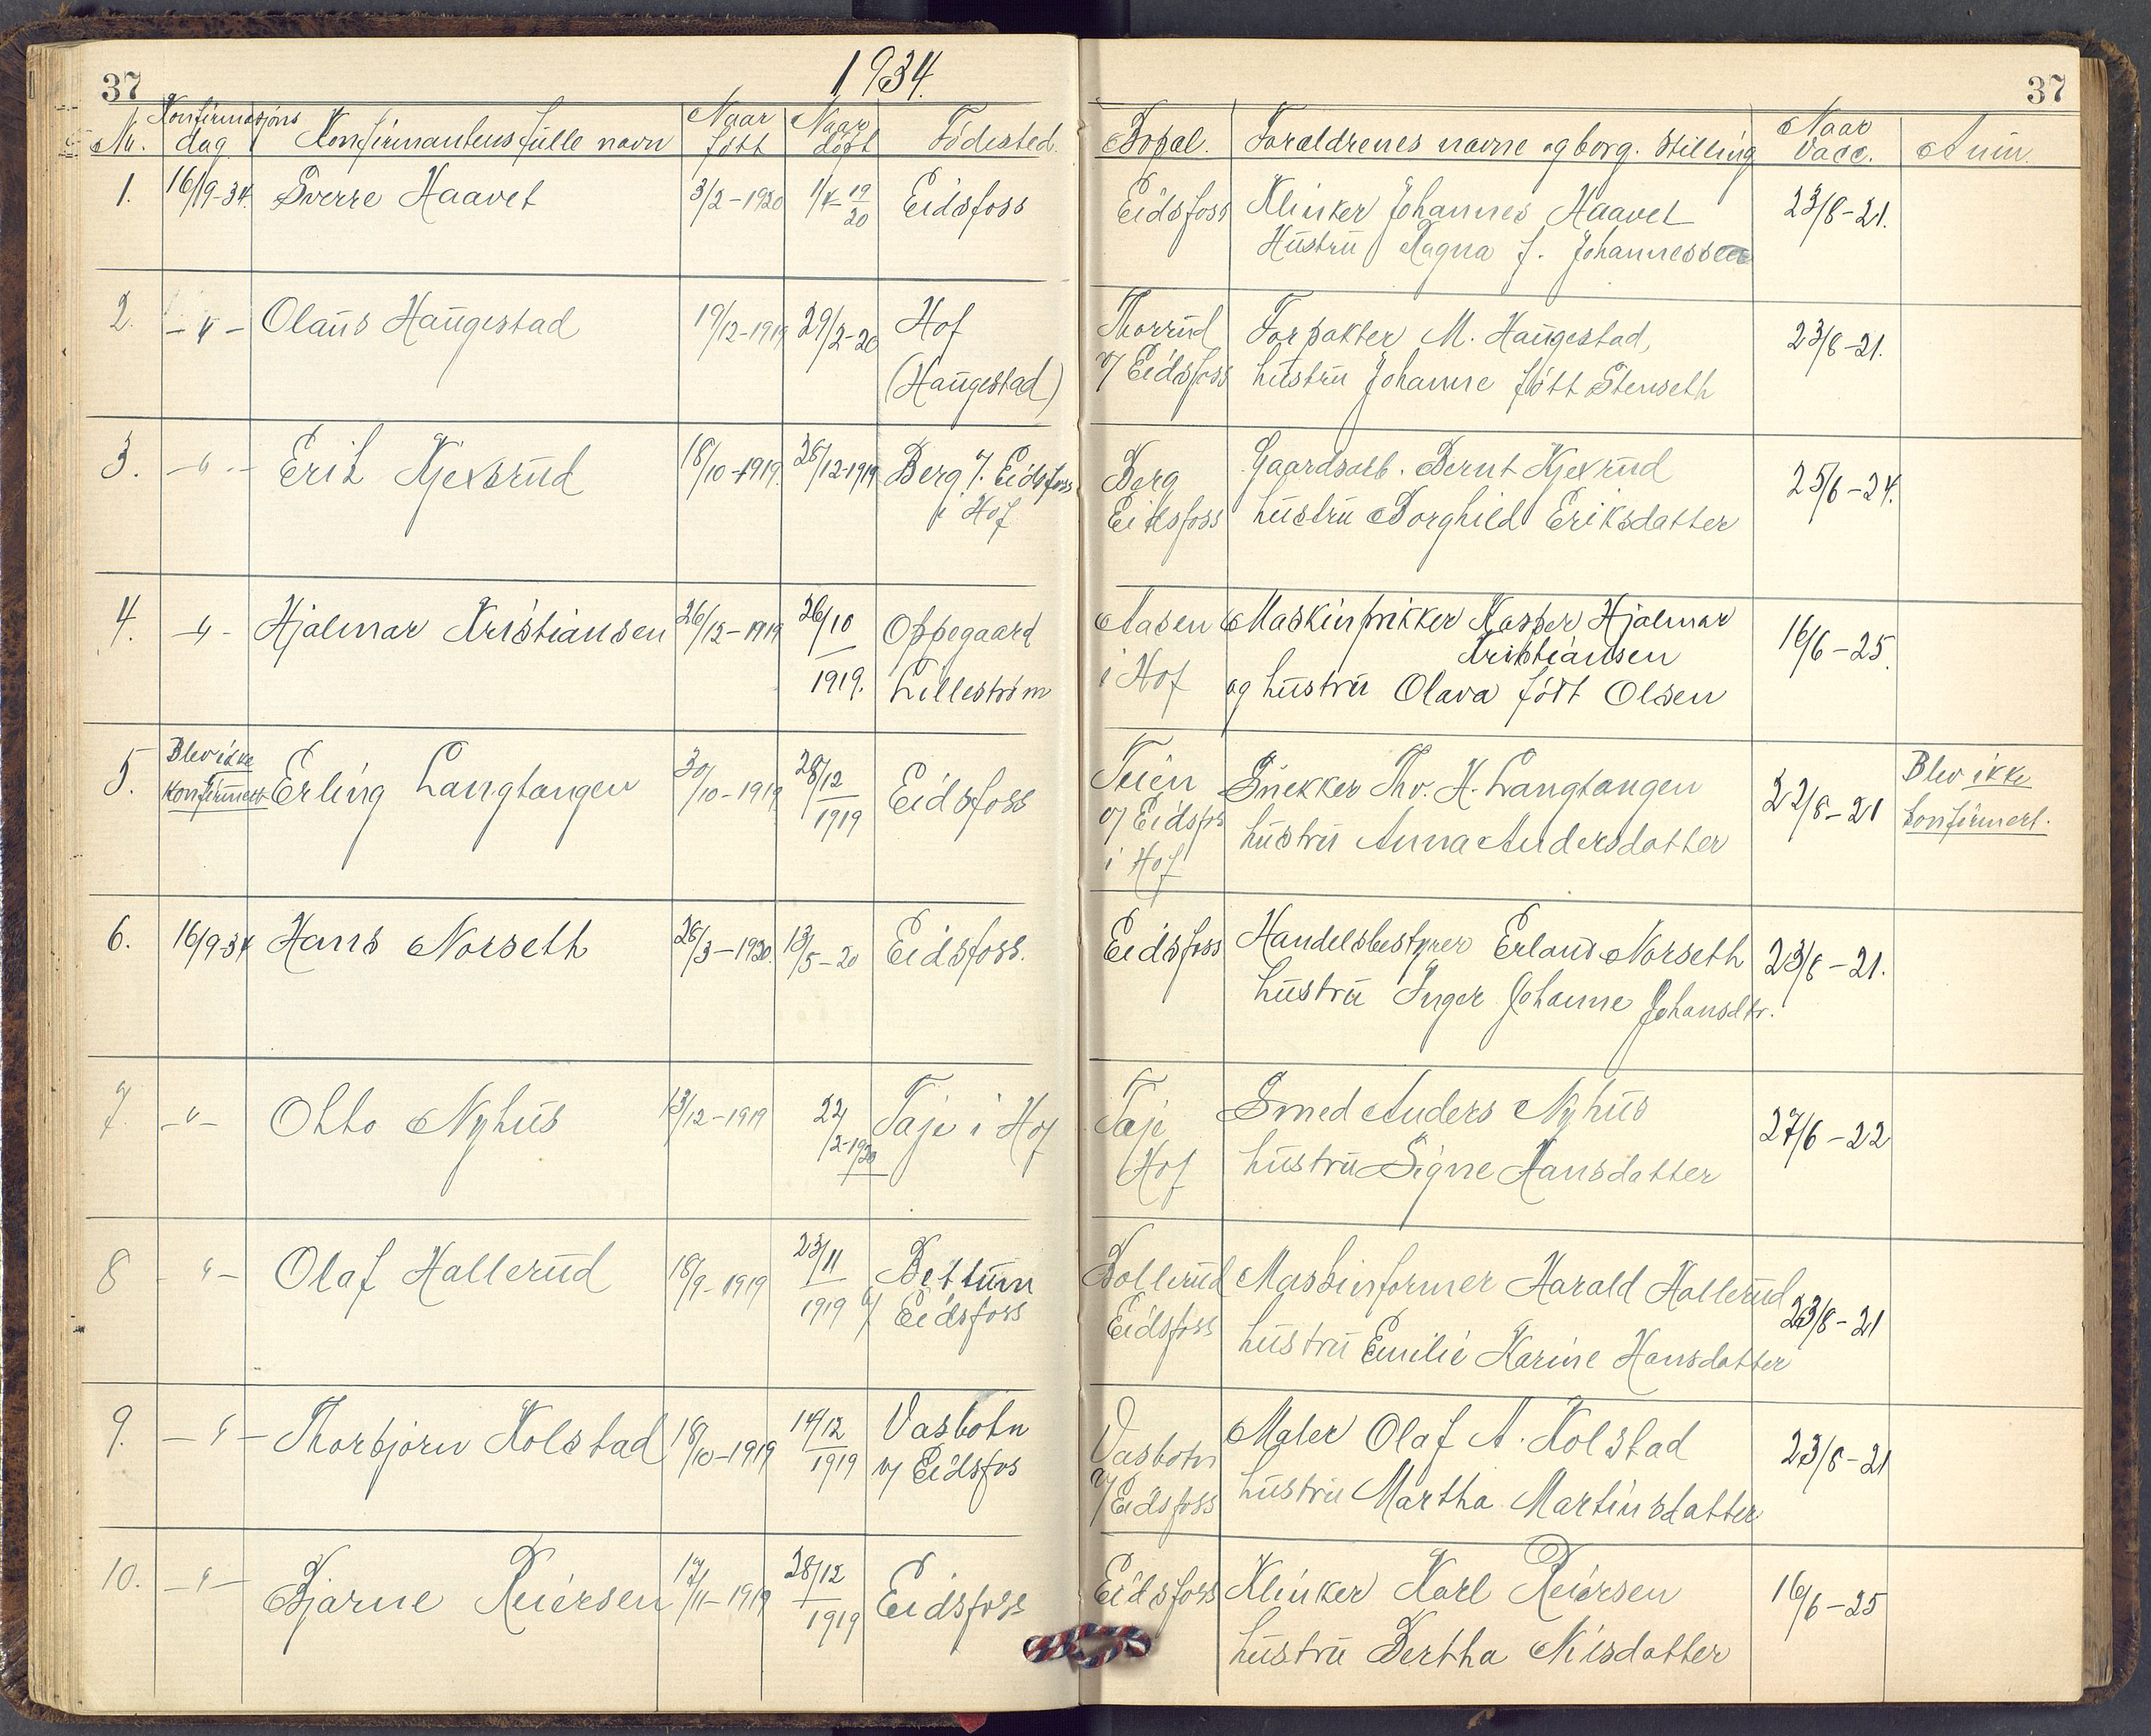 37
1934.
Nr. Konfirmasjons dag Konfirmantens fulle navn Naar født Naar døpt Födested.
1. 16/9-34 Sverre Haavet 3/2-1920 1/4-19/20 Eidsfoss
2. -"- Olaus Haugestad 19/12-1919 29/2-20 Hof
(Haugestad)
3. -"- Erik Kjexsrud 18/10-1919. 28/12-1919 Berg v. Eidsfoss
i Hof
4. -"- Hjalmar Kristiansen 26/12-1919 26/10 1919. Oppegaard
Lillestrøm
5. Blev ikke konfirmert Erling Langtangen 30/10-1919 28/12 1919 Eidsfoss
6. 16/9-34 Hans Norseth 28/3-1920. 13/5-20 Eidsfoss.
7. -"- Otto Nyhus 13/12-1919 22/2-1920 Taje i Hof
8 -"- Olaf Hallerud 18/9-1919 23/11 1919 Bettum
v/ Eidsfoss
9. -"- Thorbjørn Kolstad 18/10-1919 14/12 1919 Vasbotn
v/ Eidsfos
10. -"- Bjarne Reiersen 17/11-1919 28/12 1919 Eidsfoss
37
Bopæl. Foræeldrenes navne og borg. stilling Naar vacc. Anm.
Eidsfoss Klinker Johannes Haavet 23/8-21.
Hustru Ragna f. Johannessen
Thorrud Forpakter M. Haugestad, 23/8-21.
v/ Eidsfoss hustru Johanne født Stenseth
Berg Gaardsarb. Bernt Kjexrud 25/6-24.
Eidsfoss hustru Borghild Eriksdatter
Aasen Maskinstrikker Kasper Hjalmar 16/6-25.
Kristiansen
i Hof og hustru Olava født Olsen
Teien Snekker Thv. H. Langtangen 22/8-21 Blev ikke
v/ Eidsfos hustru Anna Andersdatter konfirmert.
i Hof
Eidsfoss Handelsbestyrer Erland Norseth 23/8-21.
hustru Inger Johanne Johansdtr.
Taje Smed Anders Nyhus 27/6-22
Hof hustru Signe Hansdatter
Bollerud Maskinformer Harald Hallerud 23/8-21
Eidsfoss hustru Emilie Karine Hansdatter
Vasbotn Maler Olaf A. Kolstad 23/8-21
v/ Eidsfoss hustru Martha Martinsdatter
Eidsfoss Klinker Karl Reiersen 16/6-25
hustru Bertha Nilsdatter